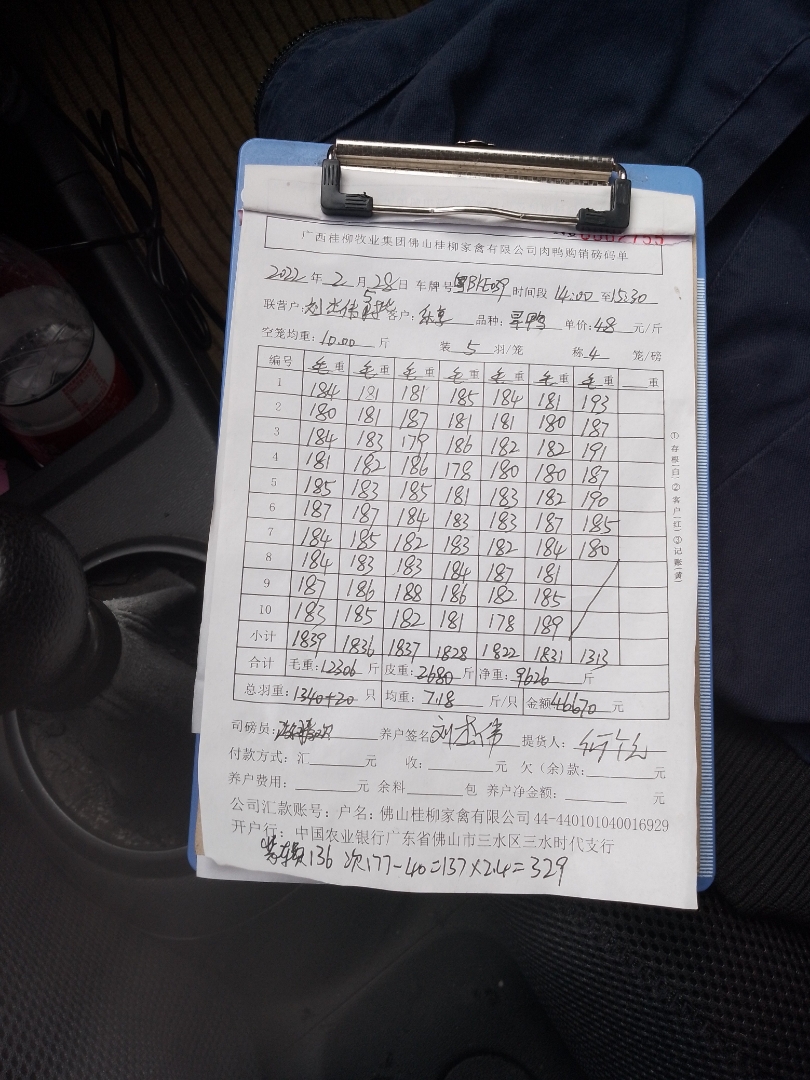 广西桂柳牧业集团佛山桂柳家禽有限公司肉鸭购销磅码单
2022年2月28日 车牌号 时间段 14:00 至 15:30
联营户: 刘杰伟 客户: 品种: 单价: 4.8 元/斤
空笼均重: 10.00 斤 装 5 羽/笼 称 4 笼/磅
编号 毛重 毛重 毛重 毛重 毛重 毛重 毛重 重
1 184 181 181 185 184 181 193
2 180 181 187 181 181 180 187
3 184 183 179 186 182 182 191
4 181 182 186 178 180 180 187
5 185 183 185 181 183 182 190
6 187 187 184 183 183 187 185
7 184 185 182 183 182 184 180
8 184 183 183 184 187 181
9 187 186 188 186 182 185
10 183 185 182 181 178 189
小计 1839 1836 1837 1828 1822 1831 1313
合计 毛重: 12306 斤 皮重: 2680 斤 净重: 9626 斤
总羽重: 1340+20 只 均重: 7.18 斤/只 金额 46670 元
司磅员: 养户签名 刘杰伟 提货人:
付款方式: 汇 元 收: 元 欠(余)款: 元
养户费用: 元 余料 包 养户净金额: 元
公司汇款账号: 户名: 佛山桂柳家禽有限公司 44-440101040016929
开户行: 中国农业银行广东省佛山市三水区三水时代支行
136 次177-40=137×2.4=329
①存根(白)②客户(红)③记账(黄)